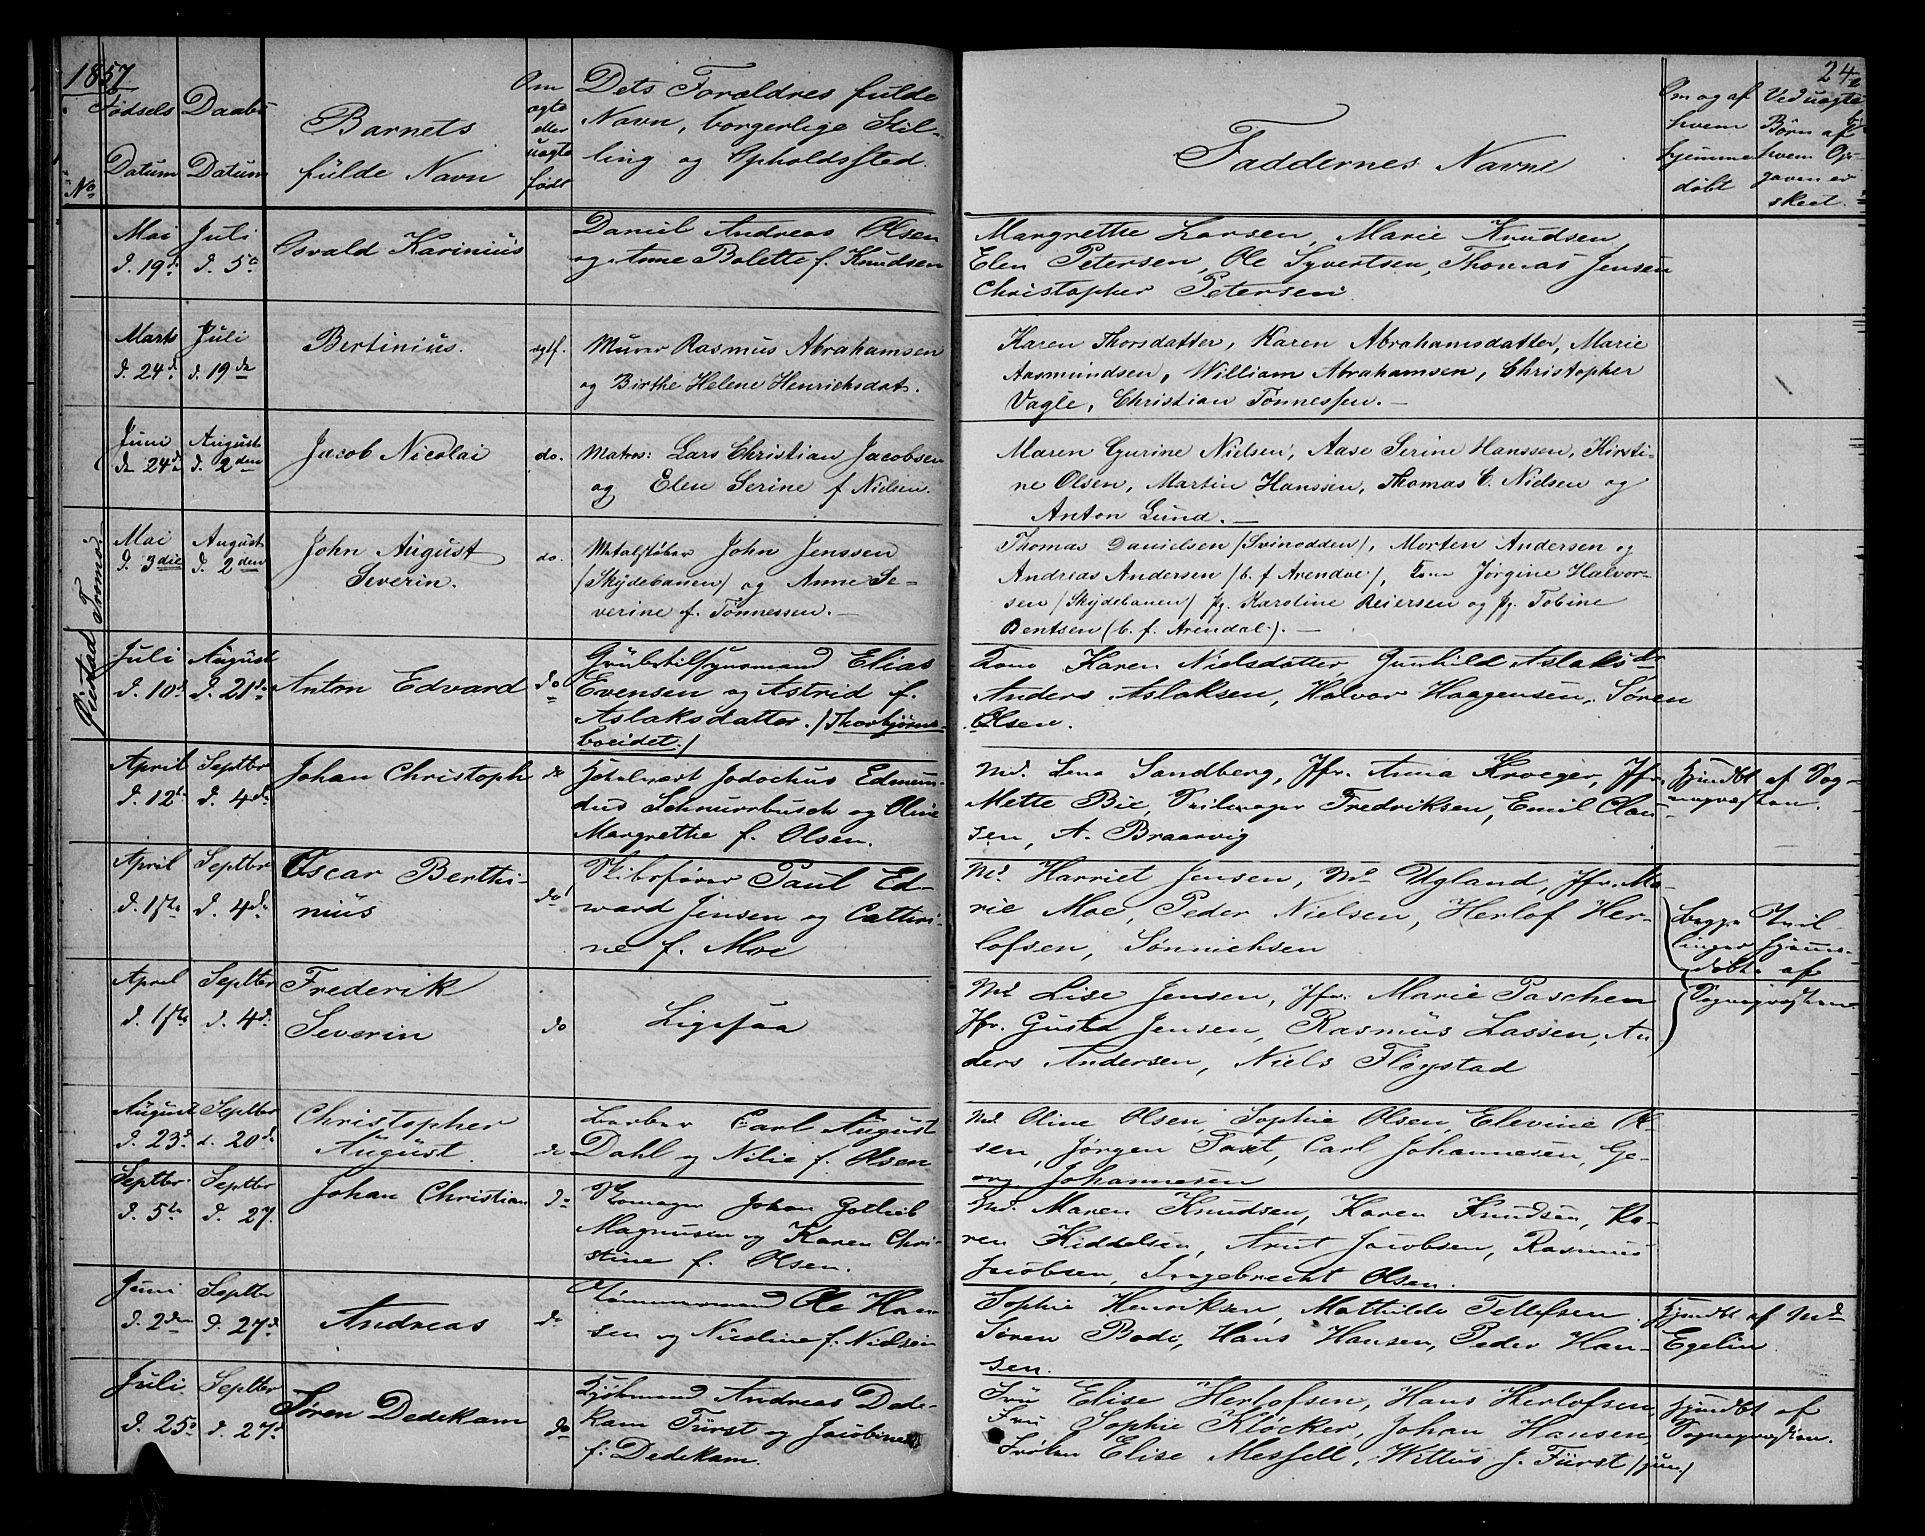 1857.
24
Fødsels Datum
Daabs Datum
Barnets fulde Navn
Om ægte eller uægte født
Dets Forældres fulde
Navn, borgerlige Stil-
ling og Opholdssted.
Faddernes Navne
Om og af hvem hjemme døbt
Ved uægte Børn af hvem
skeet.
No
Mai Juli
d. 19de d. 5te
Osvald Karinius
Daniel Andreas Olsen
og Anne Bolette f. Knudsen
Margrethe Larsen, Marie Knudsen,
Elen Petersen, Ole Syvertsen, Thomas Jensen
Christopher Petersen
Marts Juli
d. 24de d. 19de
Bertinius.
ægtf.
Murer Rasmus Abrahamsen
og Birthe Helene Henrichsdat.
Karen Thorsdatter, Karen Abrahamsdatter, Marie
Aasmundsen, William Abrahamsen, Christopher
Vagle, Christian Tønnessen. —
Juni August
d. 24de d. 2den
Jacob Nicolai
do.
Matros: Lars Christian Jacobsen
og Elen Serine f. Nielsen.
Maren Gurine Nielsen, Aase Serine Hanssen, Kirsti-
ne Olsen, Martin Hanssen, Thomas C. Nielsen og
Anton Lund. —
Øiestad Tromø
Mai August
d. 3die d. 2den
John August
Severin.
do.
Metalstøber John Jenssen
(Skydebanen) og Anne Se-
verine f. Tønnessen. —
Thomas Danielsen (Svinodden), Morten Andersen og
Andreas Andersen (b. f. Arendal), Kone Jørgine Halvor-
sen (Skydebanen) Pg. Karoline Reiersen og Pg. Tobine
Bentsen (b. f. Arendal). —
Juli August
d. 10de d. 21de
Anton Edvard
do
Elias
Evensen og Astrid f.
Aslaksdatter. (Thorbjørns-
boeidet.)
Kone Karen Nielsdatter, Gunhild Aslaksdr
Anders Aslaksen, Halvor Haagensen, Søren
Olsen.
April Septbr
d. 12te d. 4de
Johan Christoph
do
Jodochus Edmun-
dus Schnurrbusch og Oline
Margrethe f. Olsen.
Md. Lena Sandberg, Jfr. Anna Kroeger, Jfr.
Mette Bie, Seilmager Fredriksen, Emil Clau-
sen, A. Braarvig
Hjmdbt af Sog-
nepræsten.
April Septbr
d. 17de d. 4de
Oscar Berthi-
nius
do
Skibsfører Paul Ed-
ward Jensen og Cathri-
ne f. Moe
Md. Harriet Jensen, Md. Ugland, Jfr. Ma-
rie Moe, Peder Nielsen, Herlof Her-
lofsen, Sønnichsen
begge Tvil-
linger hjemme-
døbte af
Sognepræsten
April Septbr
d. 17de d. 4de
Frederik
Severin
do
Ligesaa
Md. Lise Jensen, Jfr. Marie Paschen
Jfr. Gusta Jensen, Rasmus Lassen, An-
ders Andersen, Niels Fløystad
August Septbr
d. 23de d. 20de
Christopher
August.
do
Barber Carl August
Dahl og Nilie f. Olsen
Md. Oline Olsen, Sophie Olsen, Elevine Ol-
sen, Jørgen Post, Carl Johannesen, Ge-
org Johannesen
Septbr Septbr
d. 5te d. 27.
Johan Christian
do
Skomager Johan Gotlieb
Magnusen og Karen Chri-
stine f. Olsen.
Md. Maren Knudsen, Karen Knudsen, Ka-
ren Kiddelsen, Arnt Jacobsen, Rasmus
Jacobsen, Ingebrecht Olsen.
Juni Septbr
d. 2den d. 27de
Andreas
do
Tømmermand Ole Han-
sen og Nicoline f. Nielsen
Sophie Henriksen, Mathilde Tellefsen
Søren Bodi, Hans Hansen, Peder Han-
sen.
Hjmdbt af Md
Egelin
Juli Septbr
d. 25de d. 27de
Søren Dedekam
do
Kjøbmand Andreas Dede-
kam Fürst og Jacobine
f. Dedekam.
Fru Elise Herlofsen, Hans Herlofsen,
Fru Sophie Kløcker, Johan Hansen,
Frøken Elise Messell, Wittus J. Fürst (jun.)
Hjmdbt af
Sognepræsten.